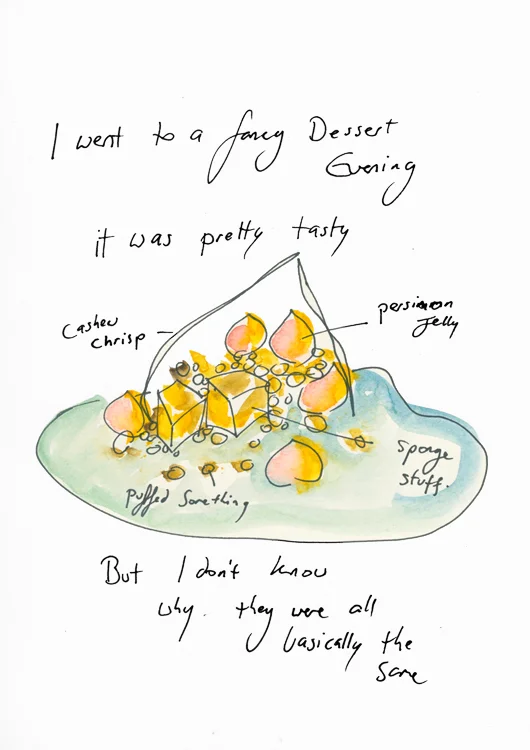 I went to a fancy Dessert
Evening
it was pretty tasty
Cashew
chrisp
persimmon
Jelly
sponge
stuff.
puffed something
But I don't know
why. they were all
basically the
same